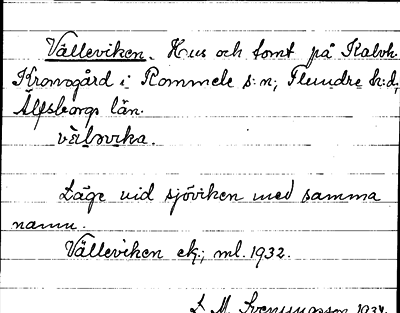 Välleviken. Hus och tomt på Kalvh.
Kronogård i Rommele s:n, Flundre h:d,
Älfsborgs län.
vèləvika.
Läge vid sjöviken med samma
namn.
Välleviken ek.; ml. 1932.
L. M. Svenungsson 1934.